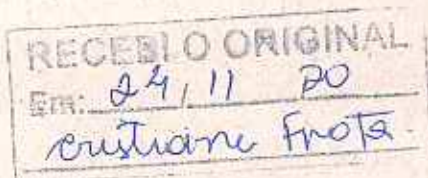 RECEBI O ORIGINAL
Em: 24, 11 20
cristiane Frota.